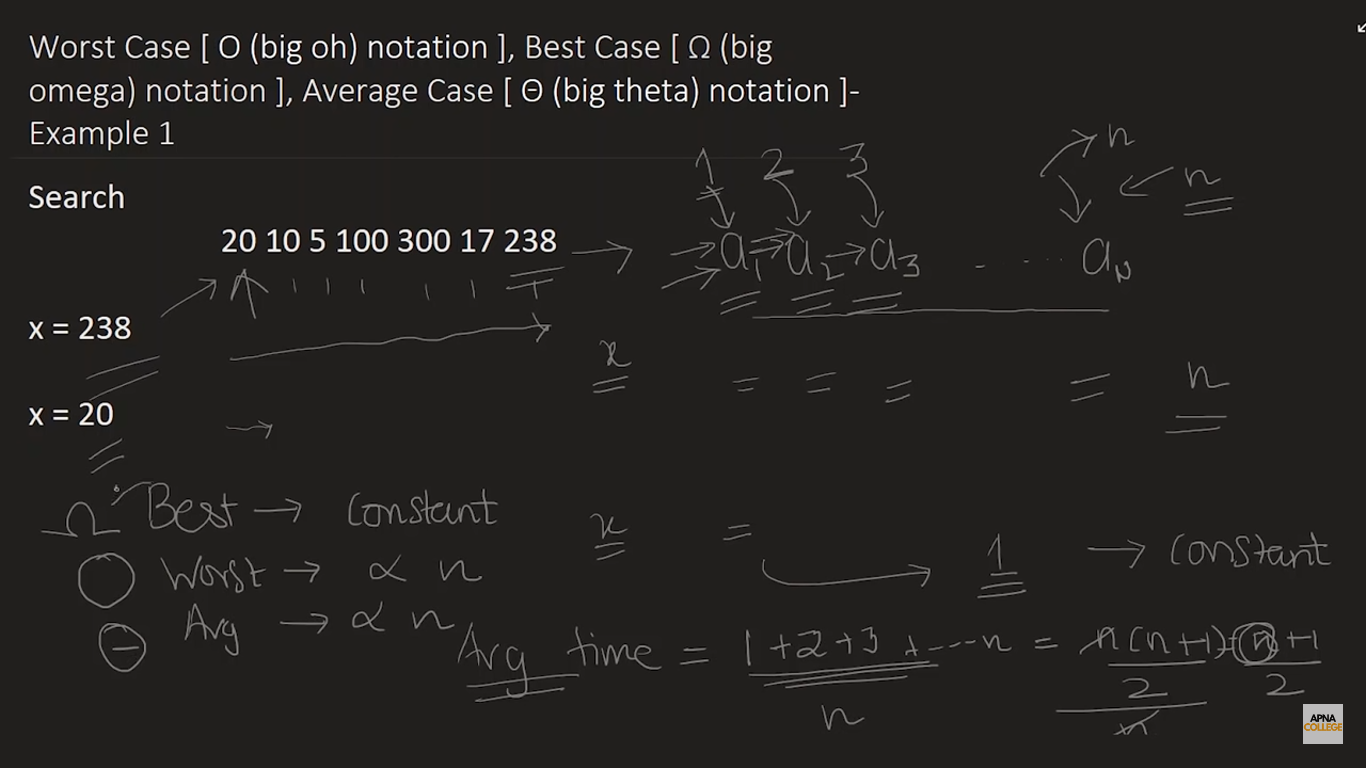 Worst Case [ O (big oh) notation ], Best Case [ Ω (big
omega) notation ], Average Case [ Θ (big theta) notation ]-
Example 1
Search
20 10 5 100 300 17 238
x = 238
x = 20
1 2 3 n
n
a₁ a₂ a₃ - ... aₙ
x = = = = n
Ω Best → Constant
x = 1 → Constant
O Worst → ∝ n
Θ Avg → ∝ n
Avg time = 1+2+3+----n / n = n(n+1) / 2 / n = n+1 / 2
APNA
COLLEGE